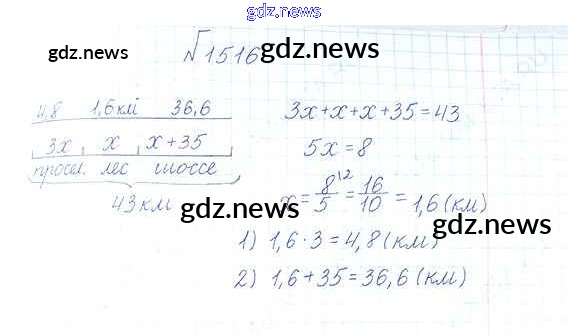 gdz.news
gdz.news
√1516
gdz.news
4,8 1,6 км 36,6
3x x x+35
просел. лес шоссе
43 км
3x+x+x+35=43
5x=8
x=8/5 ¹² =16/10=1,6(км)
gdz.news
gdz.news
1) 1,6·3=4,8(км)
2) 1,6+35=36,6(км)